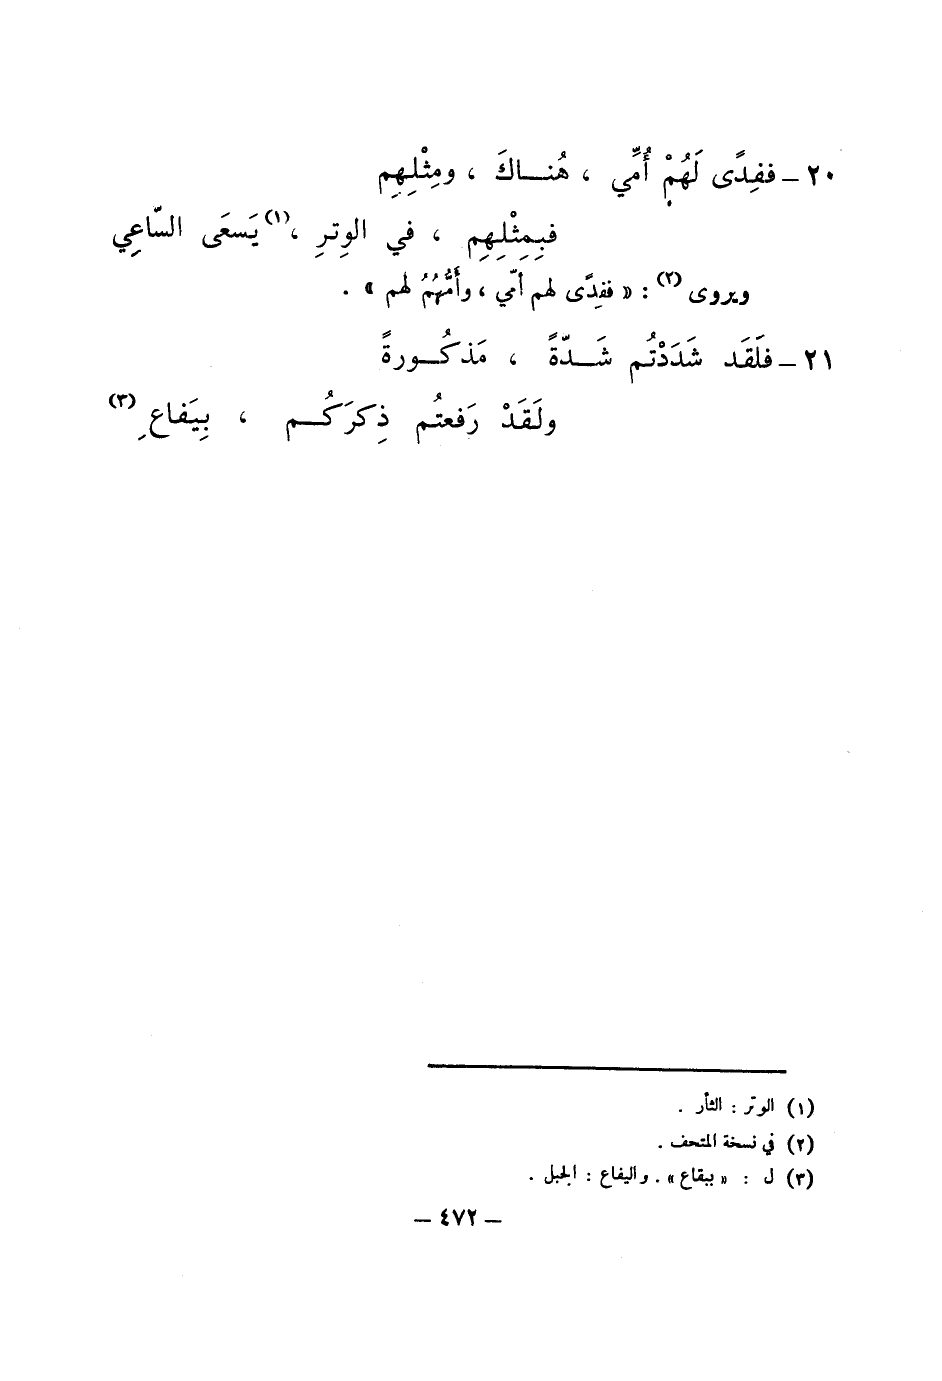 ٢٠ – ففِدًى لَهُمْ أُمِّي ، هُنـاكَ ، ومِثْلِهِم
فبِمِثْلِهِم ، في الوِترِ ،(١) يَسعَى السّاعِي
ويروى(٢) : « ففِدًى لهم أمّي ، وأُمُّهُمُ لهم » .
٢١ – فلَقَد شَدَدْتُم شَـدّةً ، مَذكُـورةً
ولَقَدْ رَفعتُم ذِكرَكُـم ، بِيَفاعِ(٣)
(١) الوتر : الثأر .
(٢) في نسخة المتحف .
(٣) ل : « ببقاع » . واليفاع : الجبل .
– ٤٧٢ –